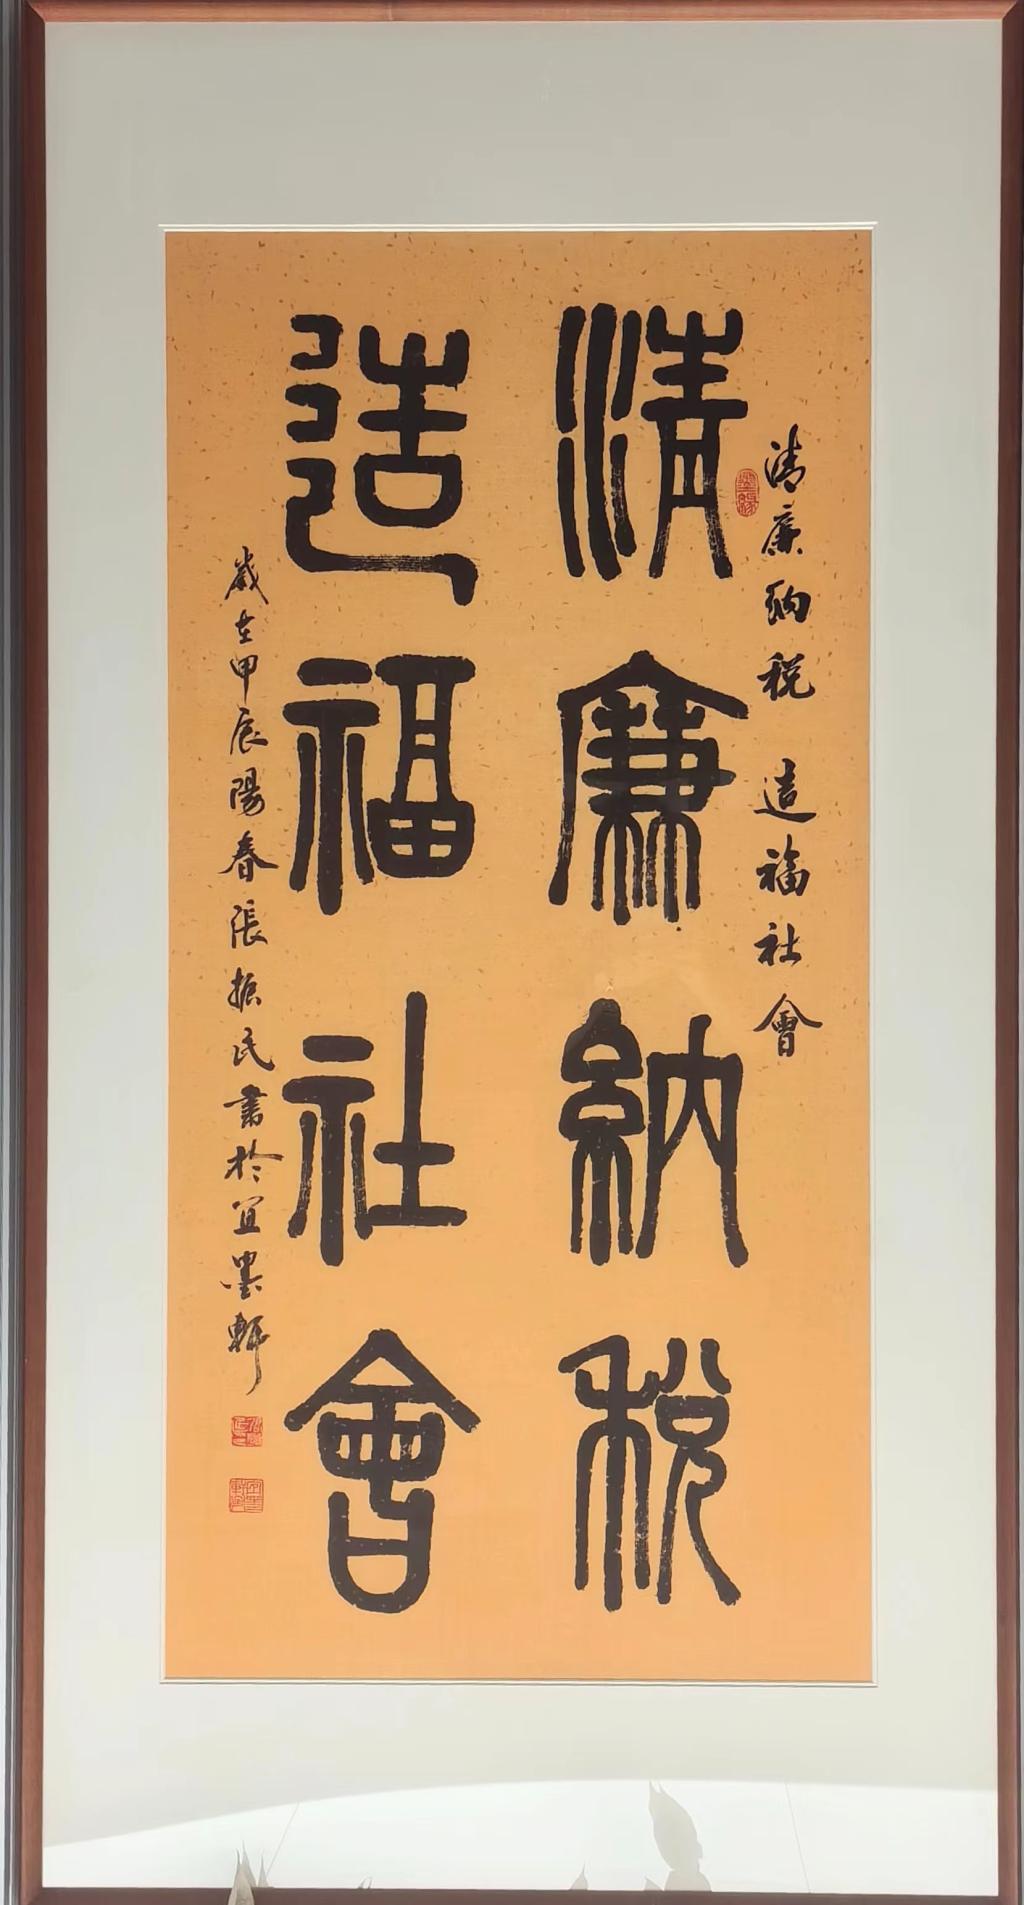 清廉納税　造福社會
清廉納税
造福社會
歲在甲辰陽春張振民書於宜墨軒